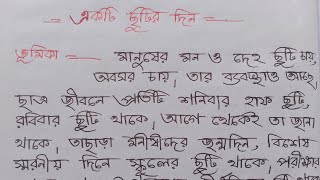 একটি ছুটির দিন
ভূমিকা মানুষের মন ও দেহ ছুটি চায়,
অবসর চায়, তার ব্যবস্থাও আছে,
ছাত্র জীবনে প্রতিটি শনিবার হাফ ছুটি,
রবিবার ছুটি থাকে, আগে থেকেই তা জানা
থাকে, তাছাড়া মনীষীদের জন্মদিন, বিশেষ
স্মরনীয় দিনে স্কুলের ছুটি থাকে, পরীক্ষার